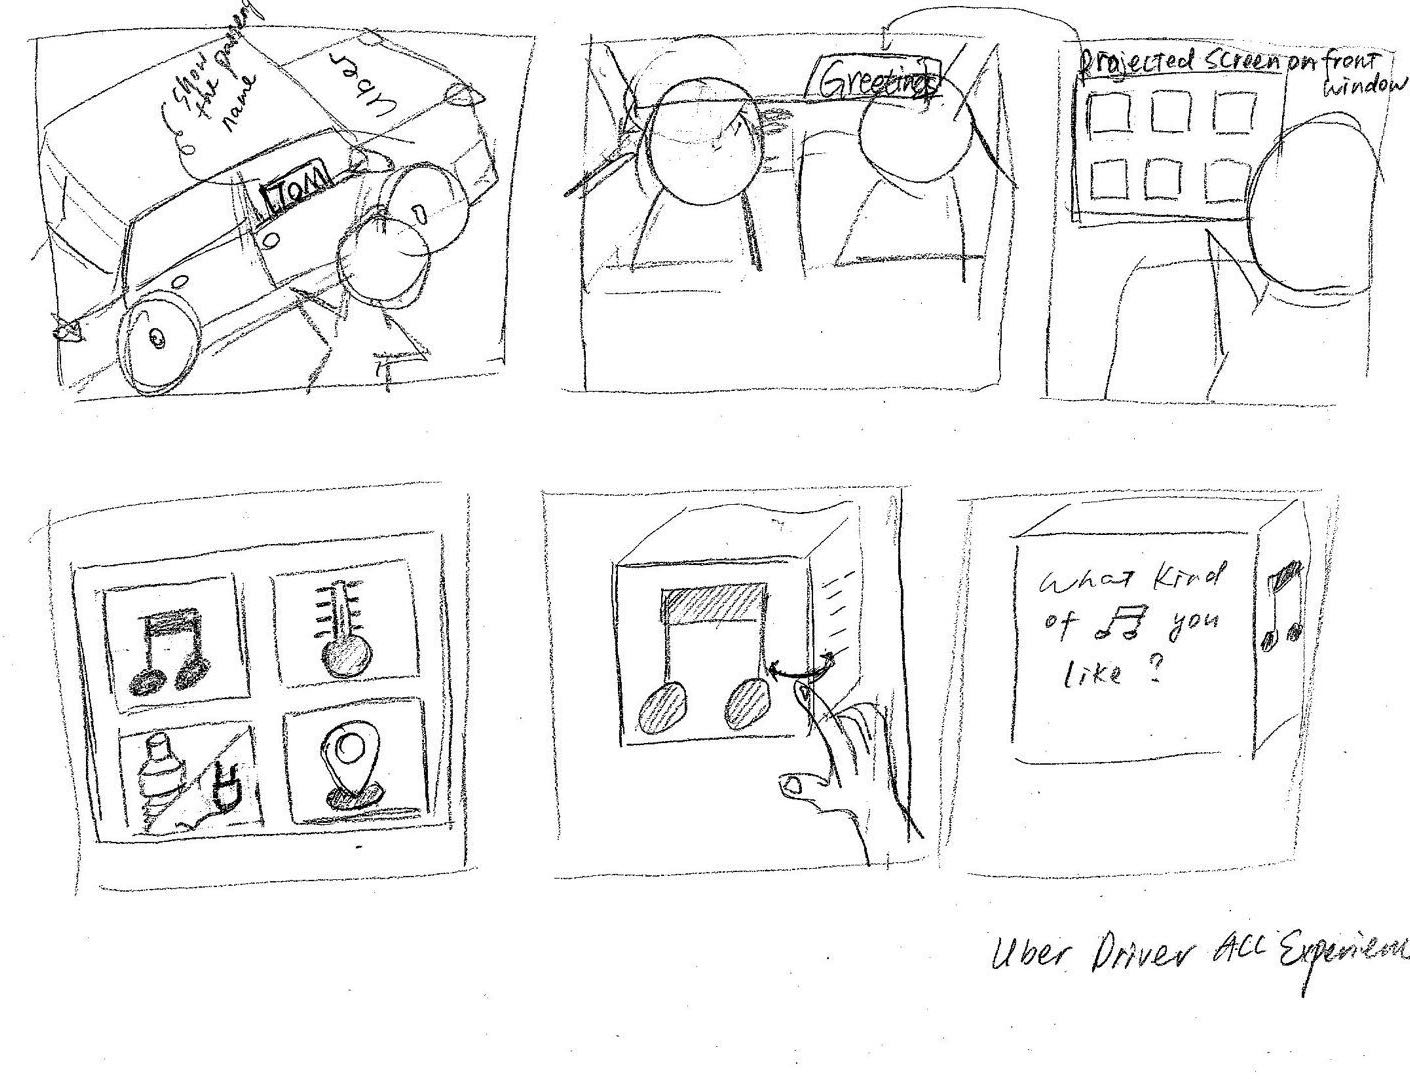 Show
the passeng
name
Uber
TOM
Greetings
Projected Screen on front
window
What Kind
of you
like?
Uber Driver ACC Experienc